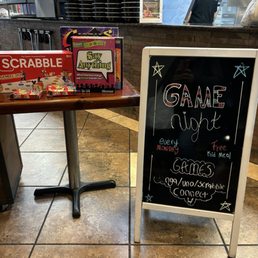 SCRABBLE
Say
Anything
GAME
night
Every
Monday
Free
Kid Meal
GAMES
uno/Scrabble
Connect